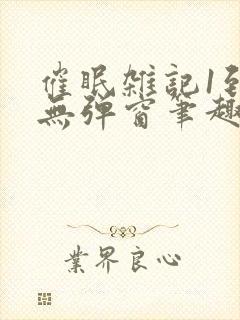 催眠雑記1至
無彈窗筆趣
業界良心